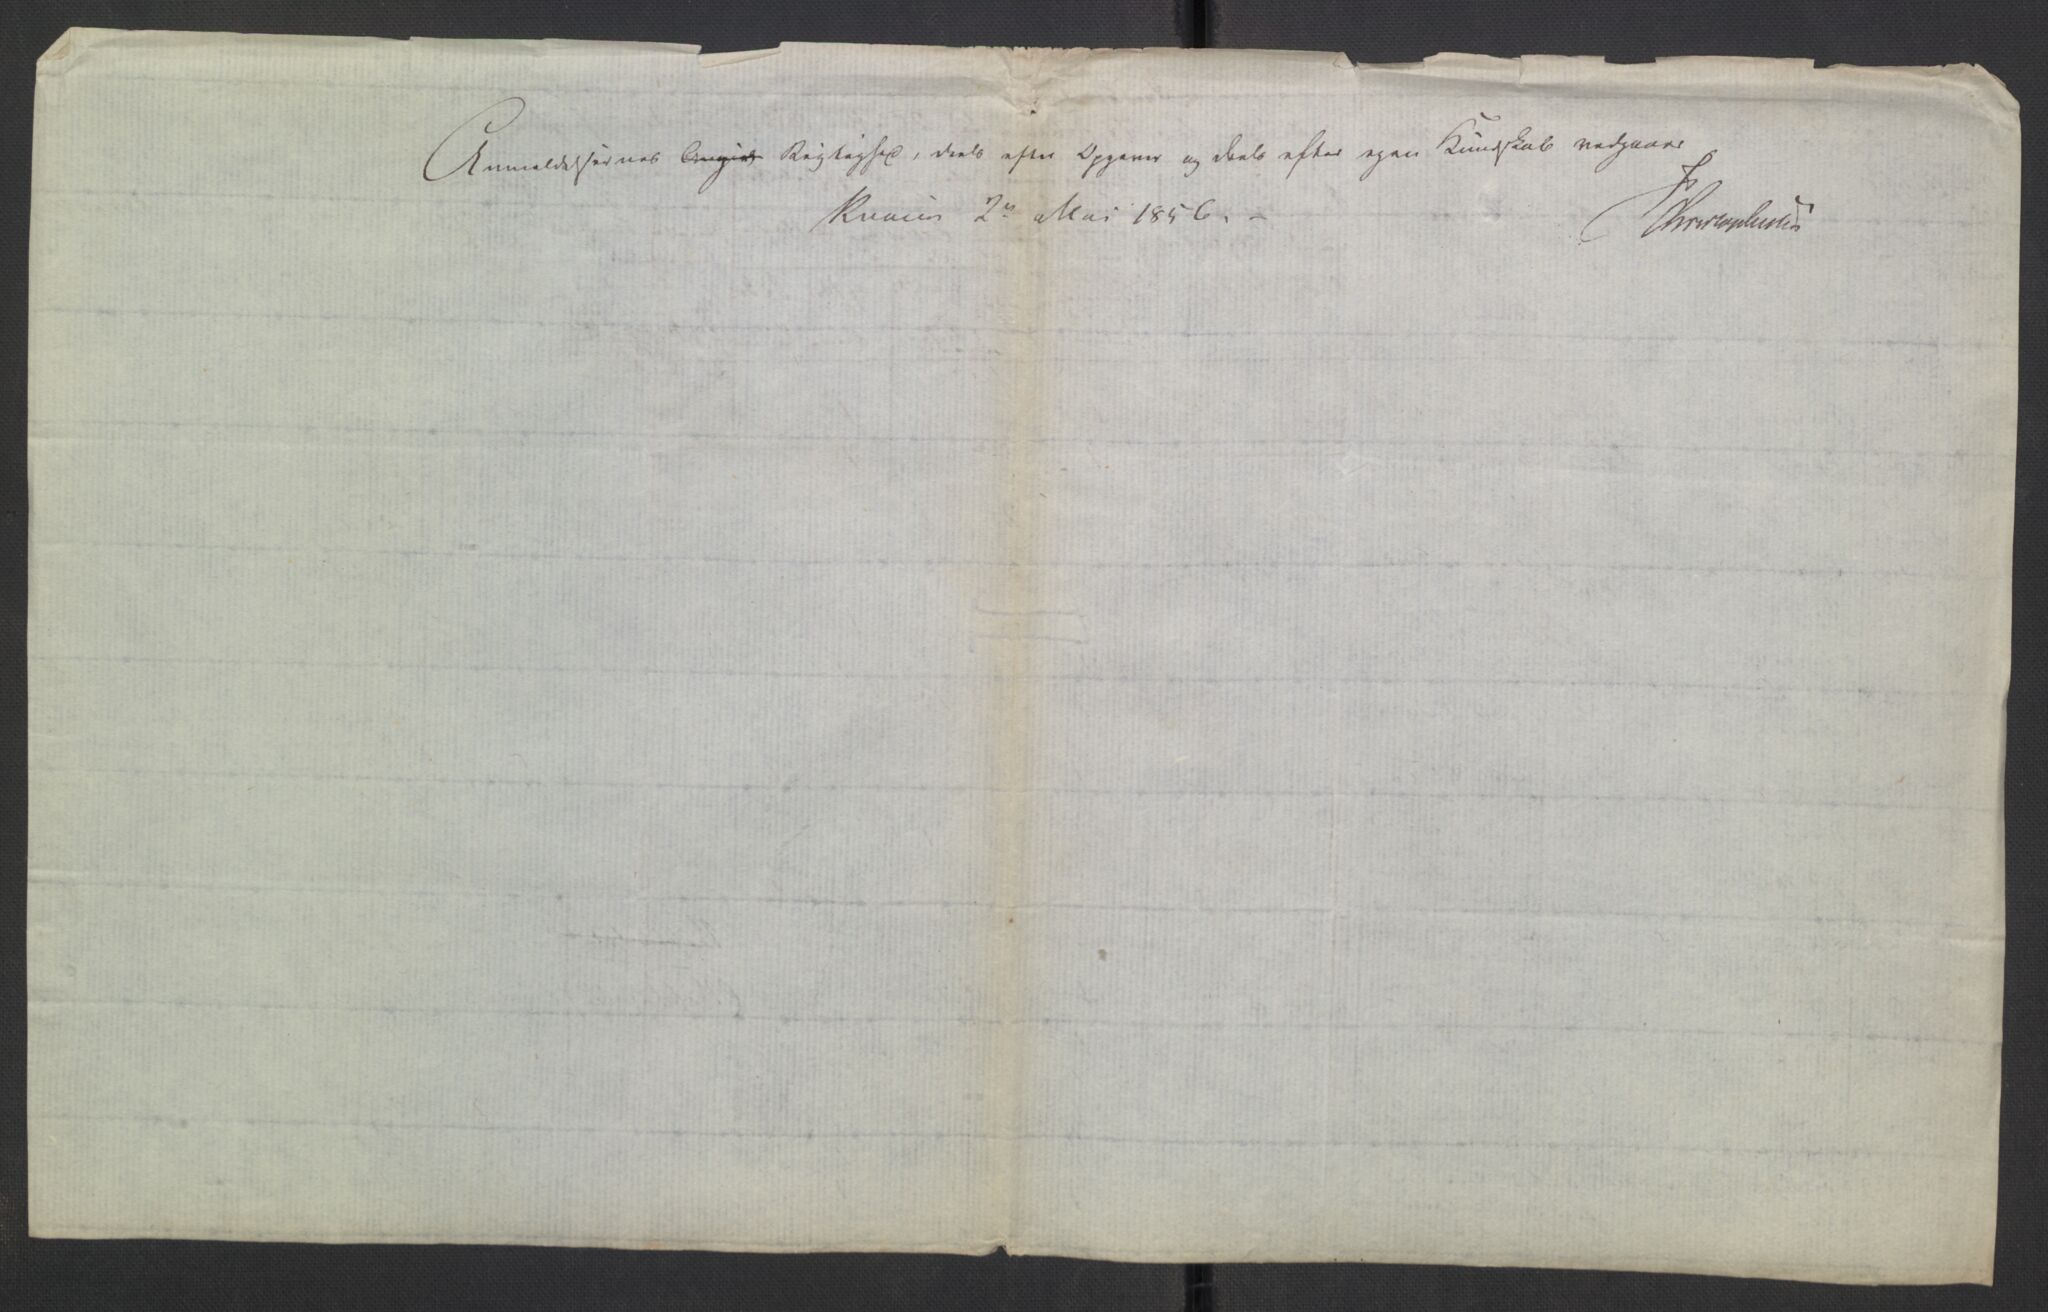 Anmeldelsernes Rigtighed, deels efter Opgaver og deels efter egen Kundskab vedgaaer
2den Mai 1856. -